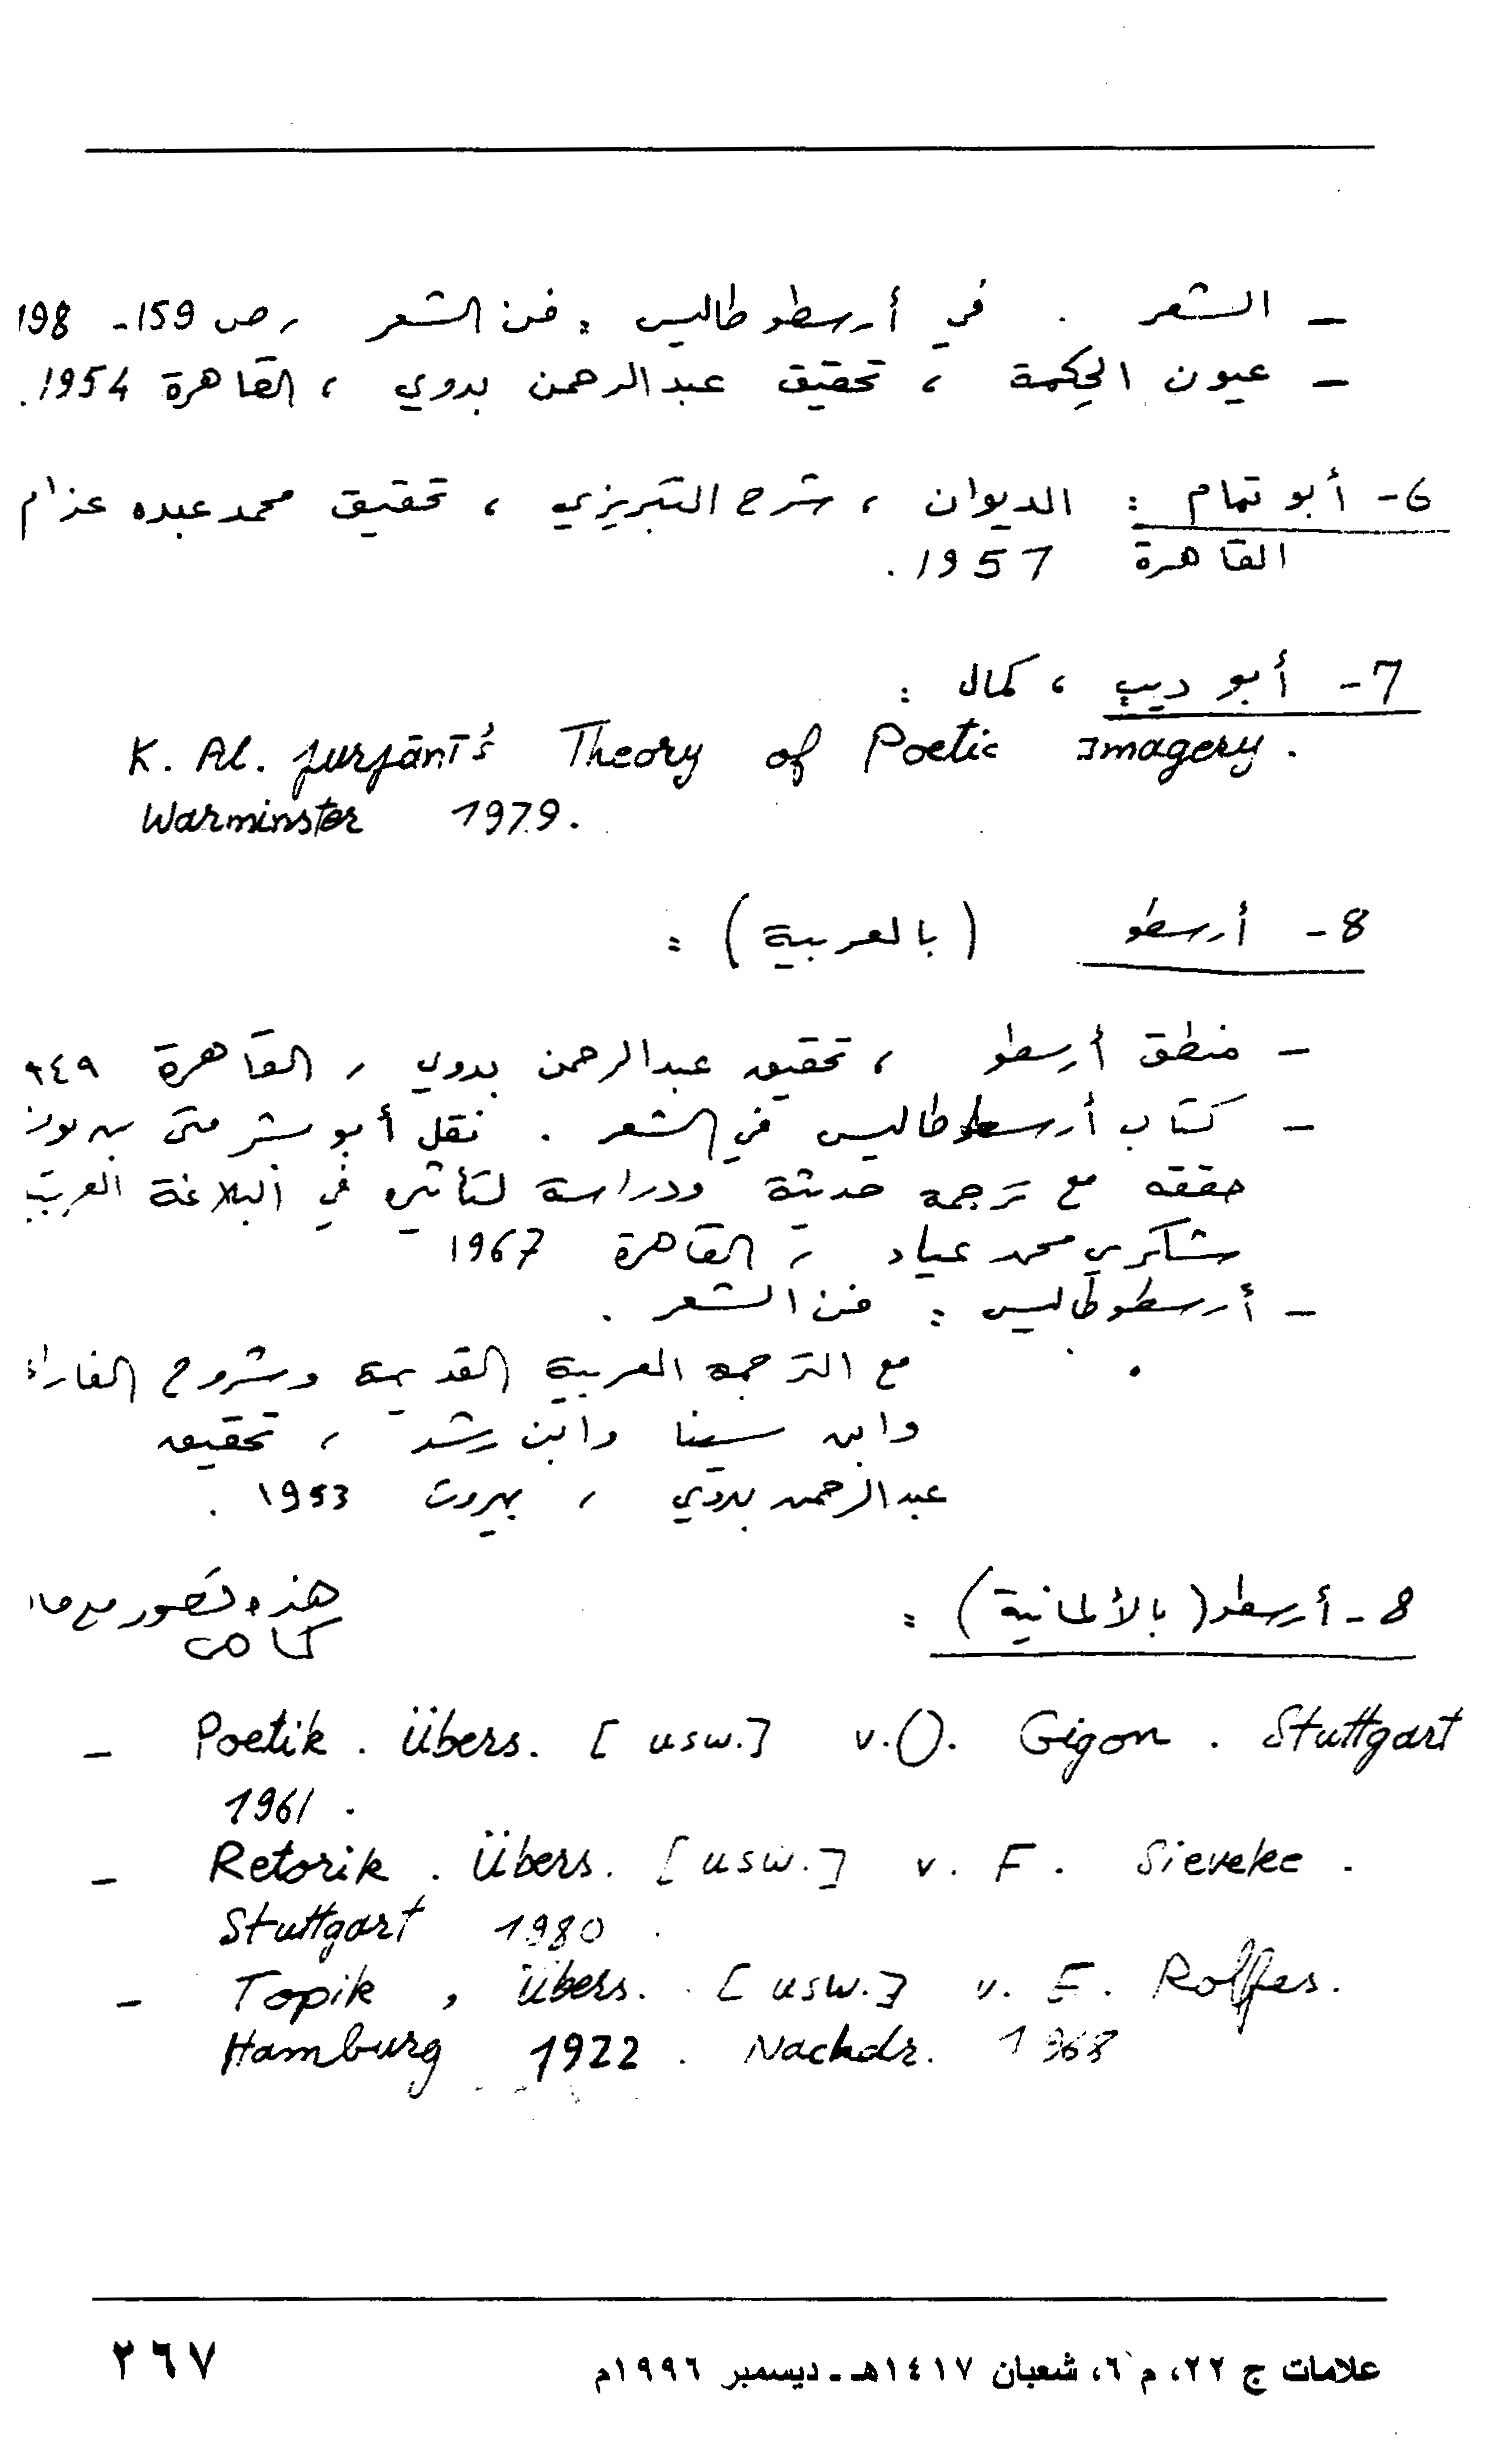 – الشعر . في أرسطوطاليس : فن الشعر ، ص 159 - 198
– عيون الحِكمة ، تحقيق عبدالرحمن بدوي ، القاهرة 1954 .
6- أبو تمام : الديوان ، شرح التبريزي ، تحقيق محمد عبده عزام
القاهرة 1957 .
7- أبو ديب ، كمال :
K. Al. Jurjānī's Theory of Poetic Imagery.
Warminster 1979.
8- أرسطو ( بالعربية ) :
– منطق أرسطو ، تحقيق عبدالرحمن بدوي ، القاهرة ٩٤٩
– كتاب أرسطوطاليس في الشعر . نقل أبو بشر متى بن
حققه مع ترجمة حديثة ودراسة لتأثيره في البلاغة العربية
شاكري محمد عياد ، القاهرة 1967
– أرسطوطاليس : فن الشعر .
مع الترجمة العربية القديمة وشروح
وابن سينا وابن رشد ، تحقيق
عبدالرحمن بدوي ، بيروت 1953 .
8- أرسطو ( بالألمانية ) :
هذه تصور مع
– Poetik . Übers. [ usw.] v. O. Gigon . Stuttgart
1961 .
– Retorik . Übers. [ usw.] v. F. Sieveke .
Stuttgart 1980 .
– Topik , Übers. [ usw.] v. E. Rolfes.
Hamburg 1922 . Nachdr. 1968
علامات ج ٢٢، م ٦، شعبان ١٤١٧هـ - ديسمبر ١٩٩٦م
٢٦٧